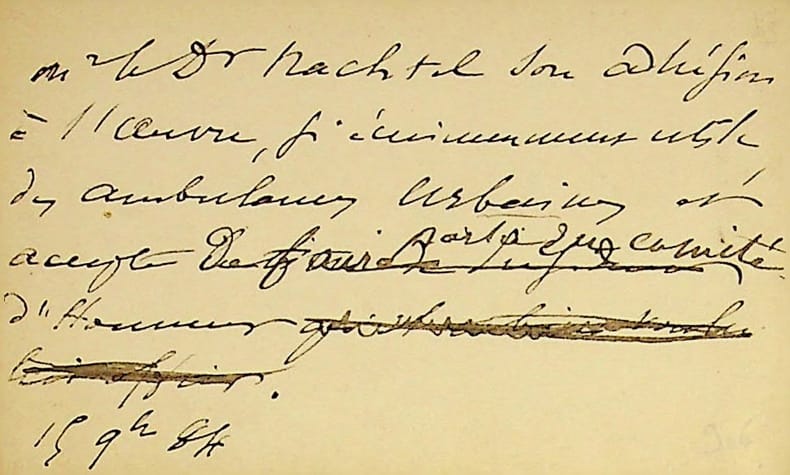 mr le Dr Nachtel son adhésion
à l'Œuvre, si éminemment utile
des ambulances urbaines et
accepte De faire partie du comité
d'Honneur
lui offrir.
15 9bre 84